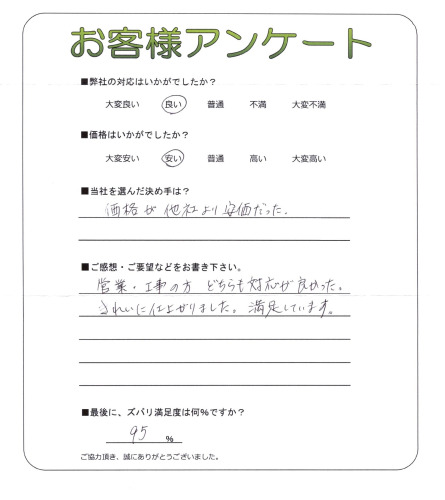 お客様アンケート
■弊社の対応はいかがでしたか？
大変良い 良い 普通 不満 大変不満
■価格はいかがでしたか？
大変安い 安い 普通 高い 大変高い
■当社を選んだ決め手は？
価格が他社より安価だった.
■ご感想・ご要望などをお書き下さい。
営業・工事の方 どちらも対応が良かった。
きれいに仕上がりました。満足しています。
■最後に、ズバリ満足度は何%ですか？
95 %
ご協力頂き、誠にありがとうございました。